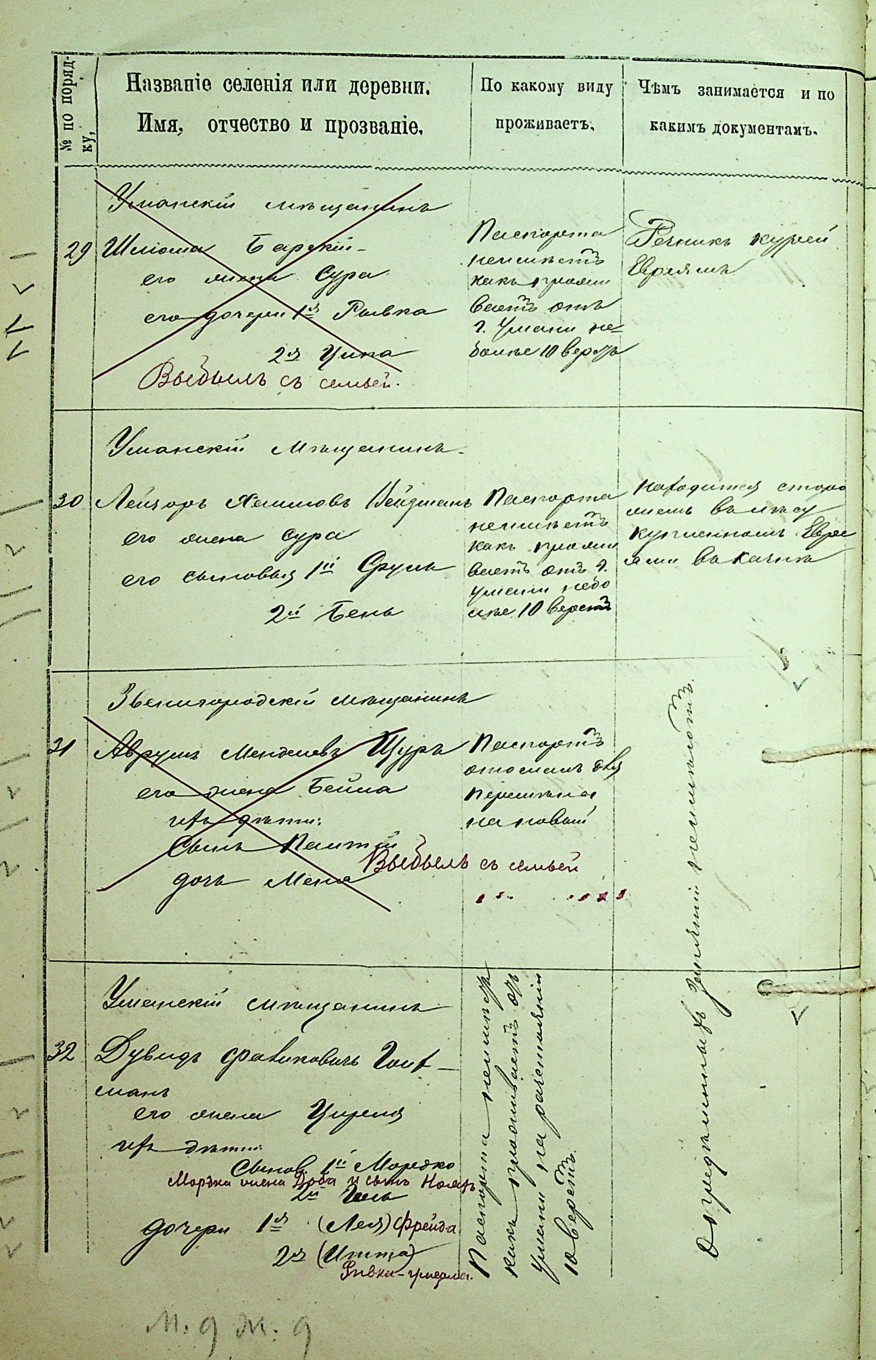 № по поряд-
ку,
Названіе селенія или деревни.
Имя, отчество и прозваніе.
По какому виду
проживаетъ.
Чѣмъ занимается и по
какимъ документамъ.
Уманскій мѣщанинъ
29 Шлiома Барскій
его жена Сура
его дочери 1я Рывка
2я Ципа
Выбылъ съ семьей.
Паспорта
неимѣетъ
какъ прожи
ваетъ отъ
г. Умани не
болѣе 10 верстъ
Резникъ курей
Евреямъ
Уманскій мѣщанинъ.
30 Лейзоръ Хаимовъ Вейцманъ
его жена Сура
его сыновья 1й Сруль
2й Бень
Паспорта
неимѣетъ
какъ прожи
ваетъ отъ г.
Умани небо
лѣе 10 верстъ
находится сторо
жемъ въ лѣсу
купленномъ Евре
ями
Звенигородскій мѣщанинъ
31 Аврумъ Менделевъ Щуръ
его жена Бейла
ихъ дѣти:
Сынъ
дочь Меня
Выбылъ съ семьей
Паспортъ
отосланъ для
перемѣна
на новый
Уманскій мѣщанинъ
32 Дувидъ Фроимовичъ Гойф-
манъ
его жена Цирля
ихъ дѣти:
Сынов 1й Мордко
Мордка жена Доба и сынъ
2й
дочери 1я (Лея) Фрейда
2я (Итта)
Ривка-умерла.
Паспорта неимѣетъ
какъ проживаетъ отъ
Умани на разстояніи
10 верстъ.
Опредѣленныхъ занятій неимѣютъ
м. 9 ж. 9